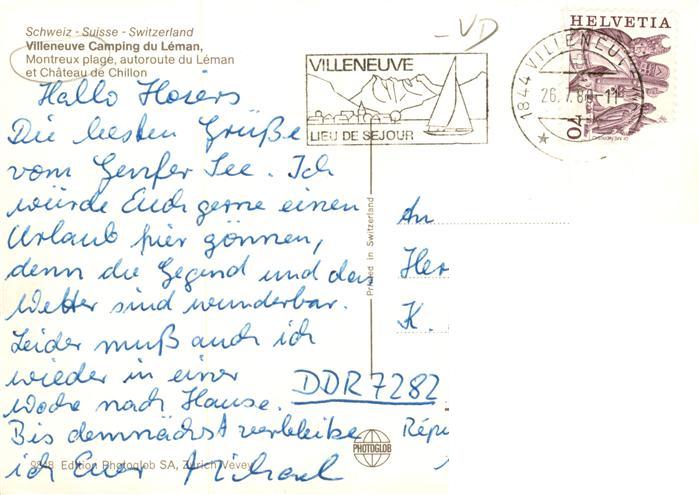 Schweiz - Suisse - Switzerland
Villeneuve Camping du Léman,
Montreux plage, autoroute du Léman
et Château de Chillon
VD
VILLENEUVE
LIEU DE SEJOUR
1844 VILLENEUVE
26.7.8 -11
HELVETIA
04
Hallo Hoiers
Die besten Grüße
vom Genfer See. Ich
würde Euch gerne einen
Urlaub hier gönnen,
denn die Gegend und das
Wetter sind wunderbar.
Leider muß auch ich
wieder in einer
Woche nach Hause.
Bis demnächst verbleibe
ich Euer Michael
Printed in Switzerland
An
Her
K.
DDR 7282
Répu
PHOTOGLOB
Edition Photoglob SA, Zürich/Vevey